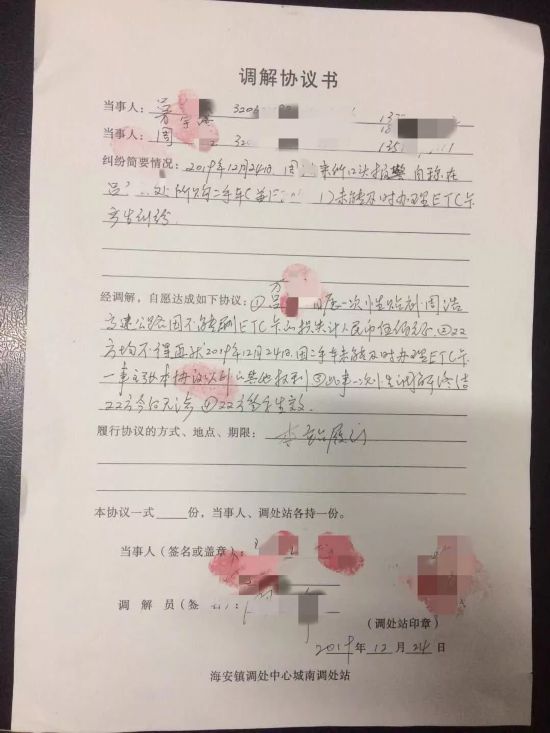 调解协议书
当事人：曾 320
当事人：周 32
纠纷简要情况：2019年12月24日，周 来所口头报警自称在
处所购二手车 未能及时办理ETC卡
产生纠纷
经调解，自愿达成如下协议：① 方 一次性赔偿周浩
高速公路因不能刷ETC卡的损失计人民币伍佰元，②双
方均不得再就2019年12月24日因二手车未能及时办理ETC卡
一事主张本协议以外的其他权利 ③此事一次性调解终结
双方今后无涉 ④双方签字生效.
履行协议的方式、地点、期限：当场履行
本协议一式 份，当事人、调处站各持一份。
当事人（签名或盖章）：
调 解 员（签 ）：
（调处站印章）
2019年12月24日
海安镇调处中心城南调处站